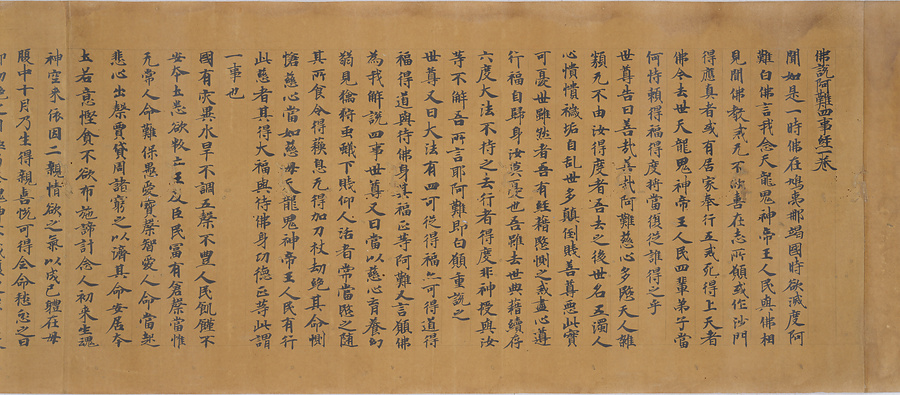 佛說阿難四事經一卷
聞如是一時佛在鳩夷那竭國時欲滅度阿
難白佛言我念天龍鬼神帝王人民與佛相
見聞佛教戒无不歡喜在志所願或作沙門
得應真者或有居家奉行五戒死得上天者
佛今去世天龍鬼神帝王人民四輩弟子當
何恃賴得福得度將當復從誰得之乎
世尊告曰善哉善哉阿難慈心多愍天人雜
類无不由汝得度者吾去之後世名五濁人
心憒憒穢垢自亂世多顛倒賤善尊惡此實
可憂世雖然者吾有經籍愍惻之戒盡心遵
行福自歸身汝莫憂也吾雖去世典籍續存
六度大法不持之去行者得度非神授與汝
等不解吾所言耶阿難即白願重說之
世尊又曰大法有四可從得福亦可得道得
福得道與侍佛身其福正等阿難又言願佛
為我解說四事世尊又曰當以慈心育養幼
弱見禽狩虫蛾下賤仰人活者常當愍之隨
其所食令得穌息无得加刀杖劫絕其命惻
愴慈心當如慈母天龍鬼神帝王人民有行
此慈者其得大福與侍佛身功德正等此謂
一事也
國有灾異水旱不調五穀不豐人民飢饉不
安本土悉欲散亡王及臣民富有倉穀當惟
无常人命難保愚愛寶穀智愛人命當起
悲心出穀賈貸周諸窮乏以濟其命安居本
土若意慳貪不欲布施諦計念人初來生魂
神空來依因二親情欲之氣以成己體在母
腹中十月乃生得親喜悅可得全命愁忿之日